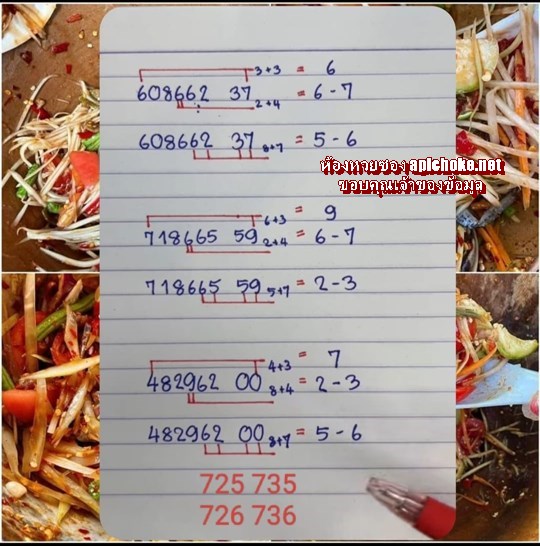 3+3 = 6
608662 37 2+4 = 6-7
608662 37 8+7 = 5-6
ห้องหวยซอง apichoke.net
ขอบคุณเจ้าของข้อมูล
6+3 = 9
718665 59 2+4 = 6-7
718665 59 5+7 = 2-3
4+3 = 7
482962 00 8+4 = 2-3
482962 00 8+7 = 5-6
725 735
726 736